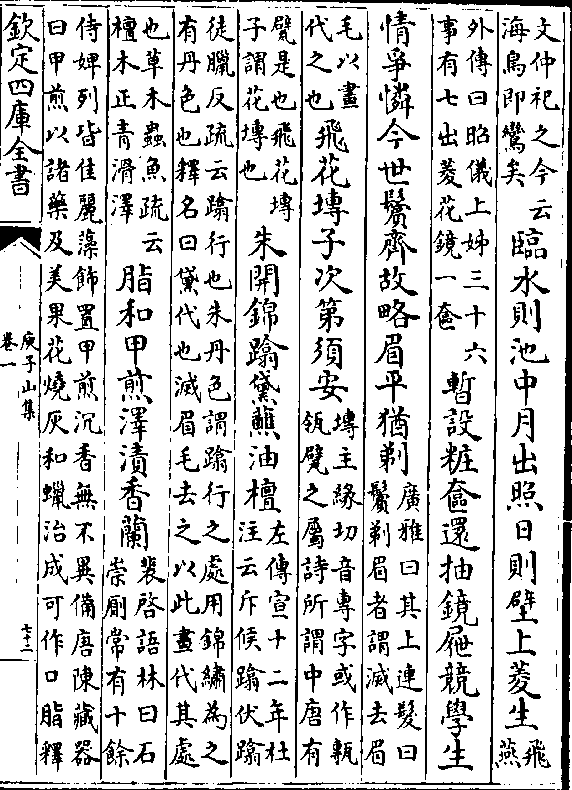 文仲祀之今云
海鳥即鸞矣
臨水則池中月出照日則壁上菱生
飛
燕
外傳曰昭儀上姊三十六
事有七出菱花鏡一奩
暫設粧奩還抽鏡屜競學生
情爭憐今世鬢齊故略眉平猶剃
廣雅曰其上連髮曰
鬢剃眉者謂滅去眉
毛以畫
代之也
飛花塼子次第須安
塼主緣切音專字或作甎
瓴甓之屬詩所謂中唐有
甓是也飛花塼
子謂花塼也
朱開錦蹹黛蘸油檀
左傳宣十二年杜
注云斥候蹹伏蹹
徒臘反疏云蹹行也朱丹色謂蹹行之處用錦繡為之
有丹色也釋名曰黛代也滅眉毛去之以此畫代其處
也草木蟲魚疏云
檀木正青滑澤
脂和甲煎澤漬香蘭
裴啓語林曰石
崇厠常有十餘
侍婢列皆佳麗藻飾置甲煎沉香無不異備唐陳藏器
曰甲煎以諸藥及美果花燒灰和蠟治成可作口脂釋
欽定四庫全書
庾子山集
卷一
七十三